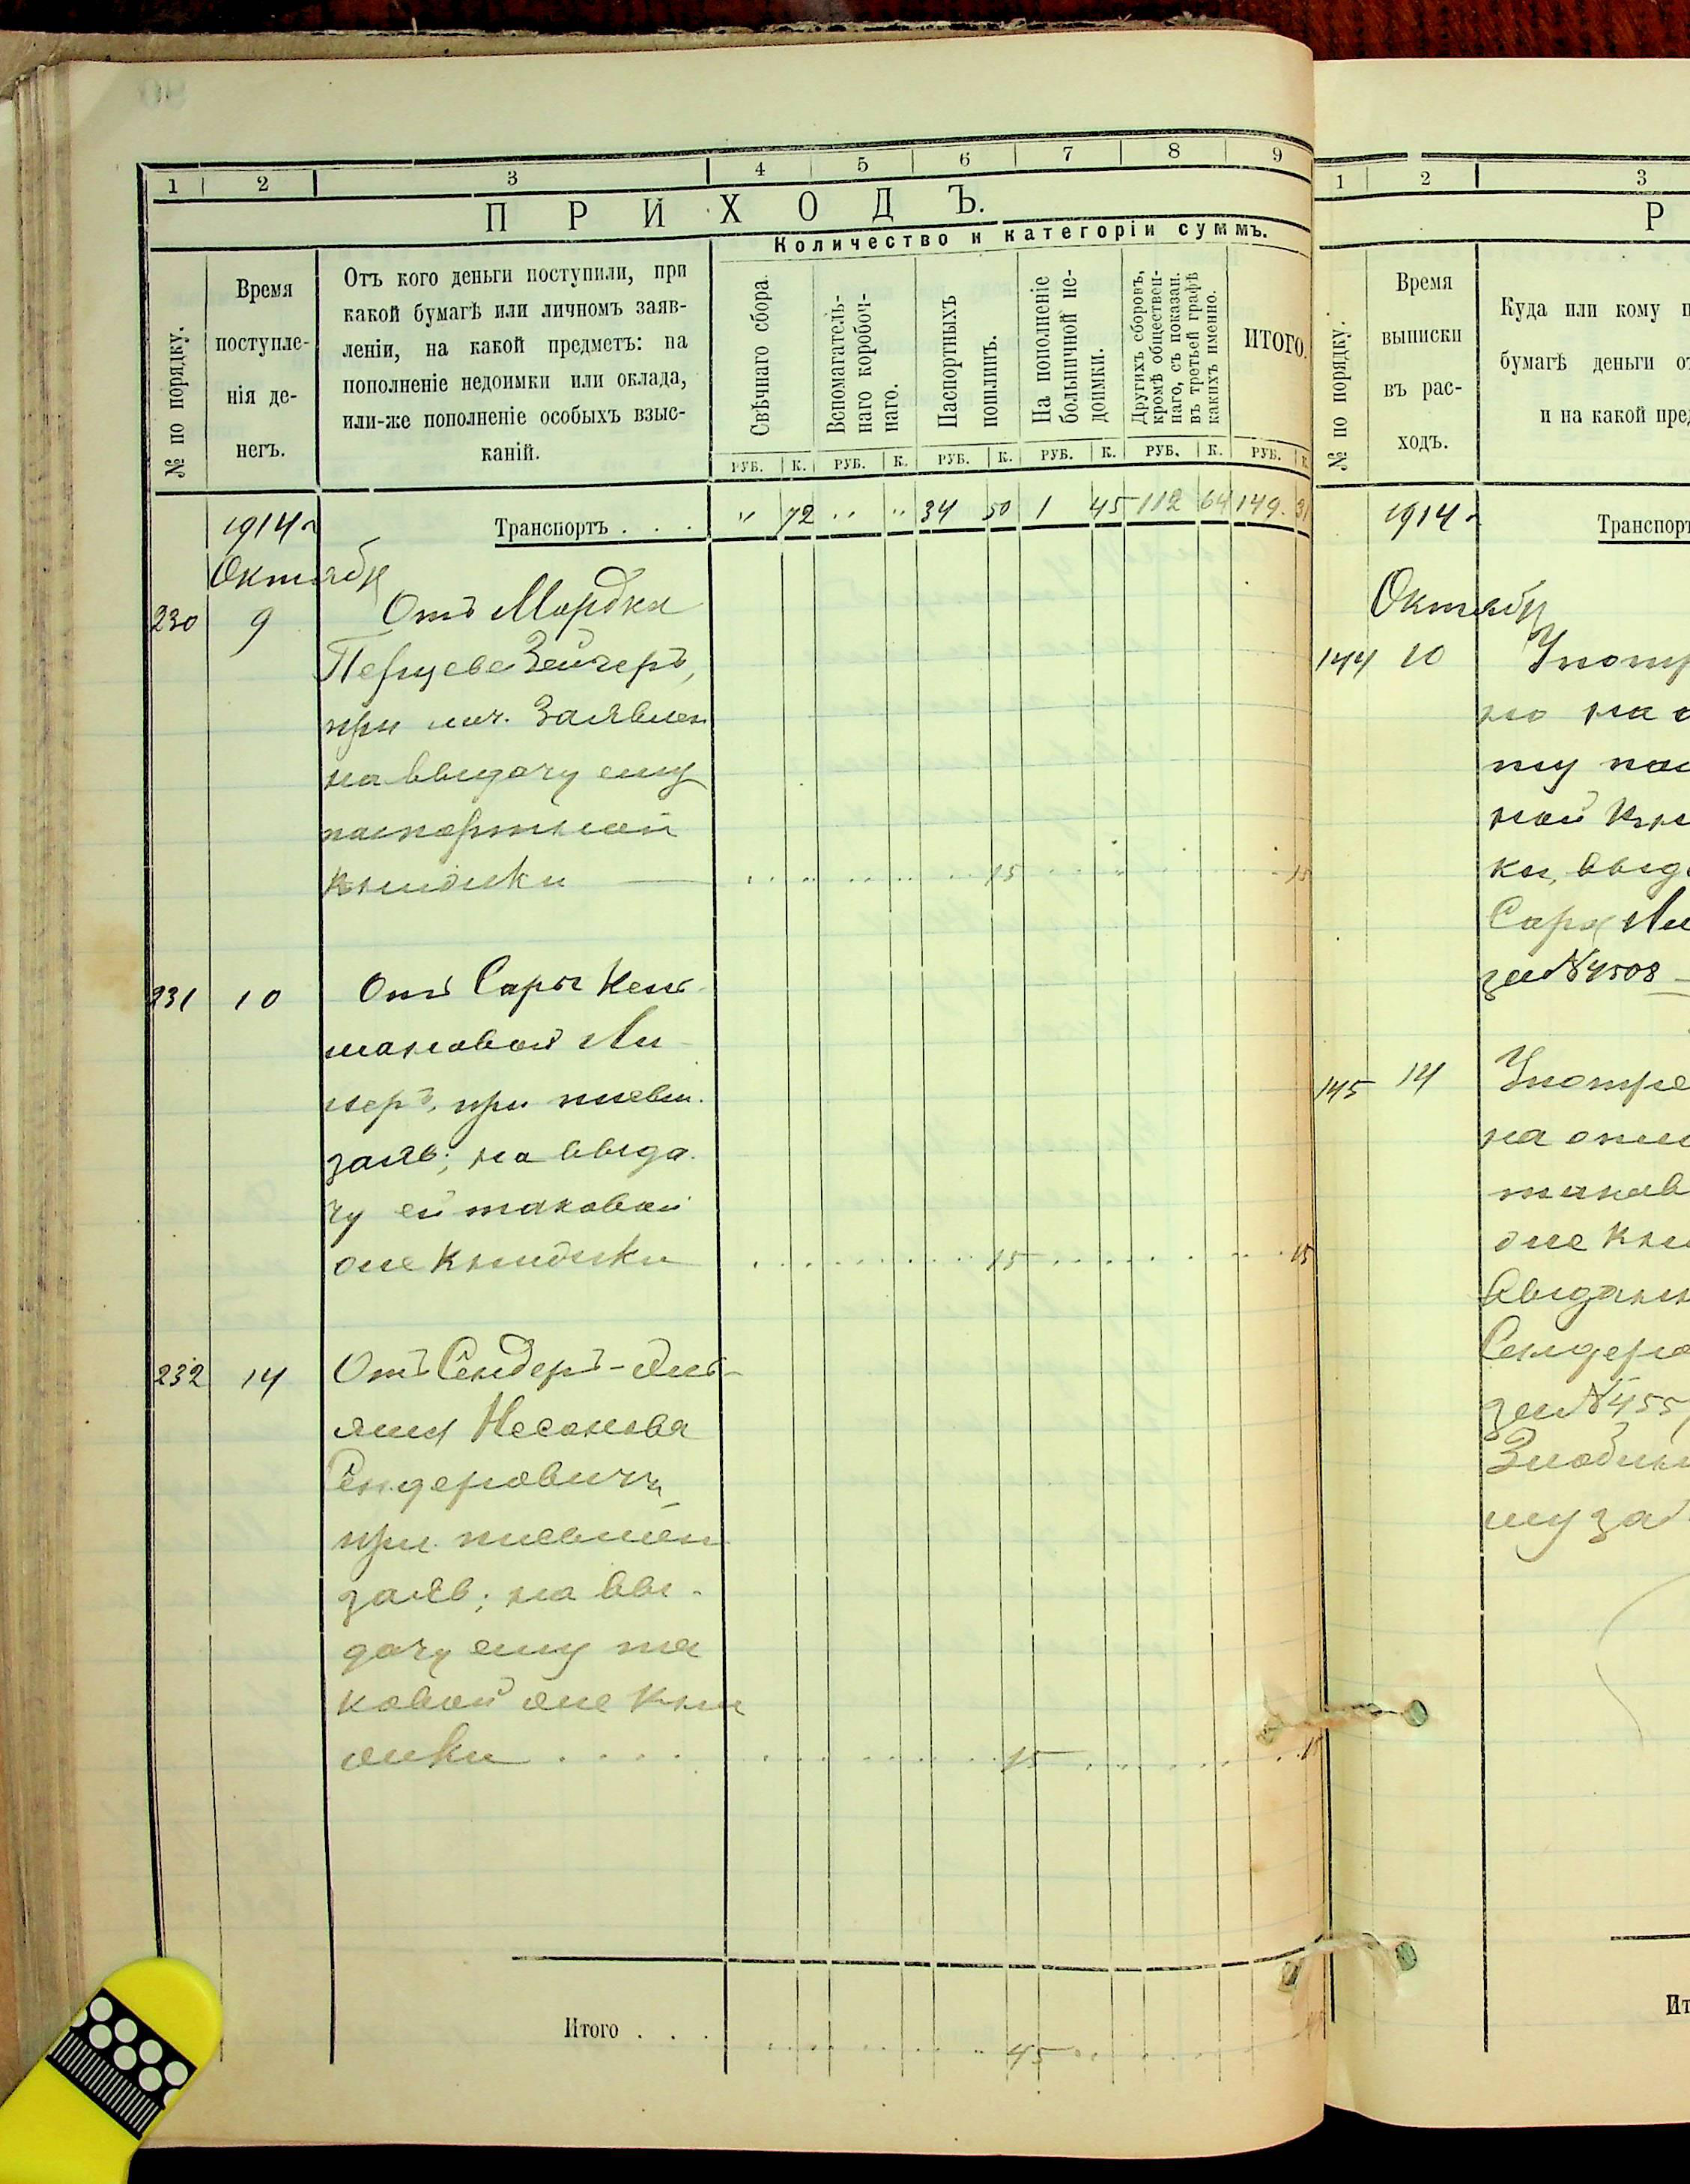 1 2 3 4 5 6 7 8 9
ПРИХОДЪ.
Количество и категоріи суммъ.
№ по порядку.
Время
поступле-
нія де-
негъ.
Отъ кого деньги поступили, при
какой бумагѣ или личномъ заяв-
леніи, на какой предметъ: на
пополненіе недоимки или оклада,
или-же пополненіе особыхъ взыс-
каній.
Свѣчнаго сбора.
Вспомагатель-
наго коробоч-
наго.
Паспортныхъ
пошлинъ.
На пополненіе
больничной не-
доимки.
Другихъ сборовъ,
кромѣ обществен-
наго, съ показан.
въ третьей графѣ
какихъ именно.
ИТОГО.
РУБ. К. РУБ. К. РУБ. К. РУБ. К. РУБ. К. РУБ. К.
1914 г
Транспортъ . . . " 72 " " 34 50 1 45 112 64 149. 31
Октябр
230 9 Отъ Мордка
Перцева Зейгеръ,
при лич. заявлен
на выдачу ему
паспортной
книжки 15 15
231 10 Отъ Сары Кель-
мановой Ли-
неръ, при письм.
заяв; на выда-
чу ей таковой
же книжки 15 15
232 14 Отъ Сендеръ-
Несанова
Сендеровичъ,
при письмен
заяв; на вы-
дачу ему та
ковой же кни
жки . . . . 15 15
Итого . . . 45 45
1 2 3
Р
№ по порядку.
Время
выписки
въ рас-
ходъ.
Куда или кому п
бумагѣ деньги от
и на какой пред
1914 г
Транспорт
Октябр
144 10 Употр
но на о
ту пас
ной кни
ки, выд
Сарѣ Ли
за № 4508
145 14 Употре
на опла
таков
же кни
выданн
Сендеро
за № 455
му за
Ит